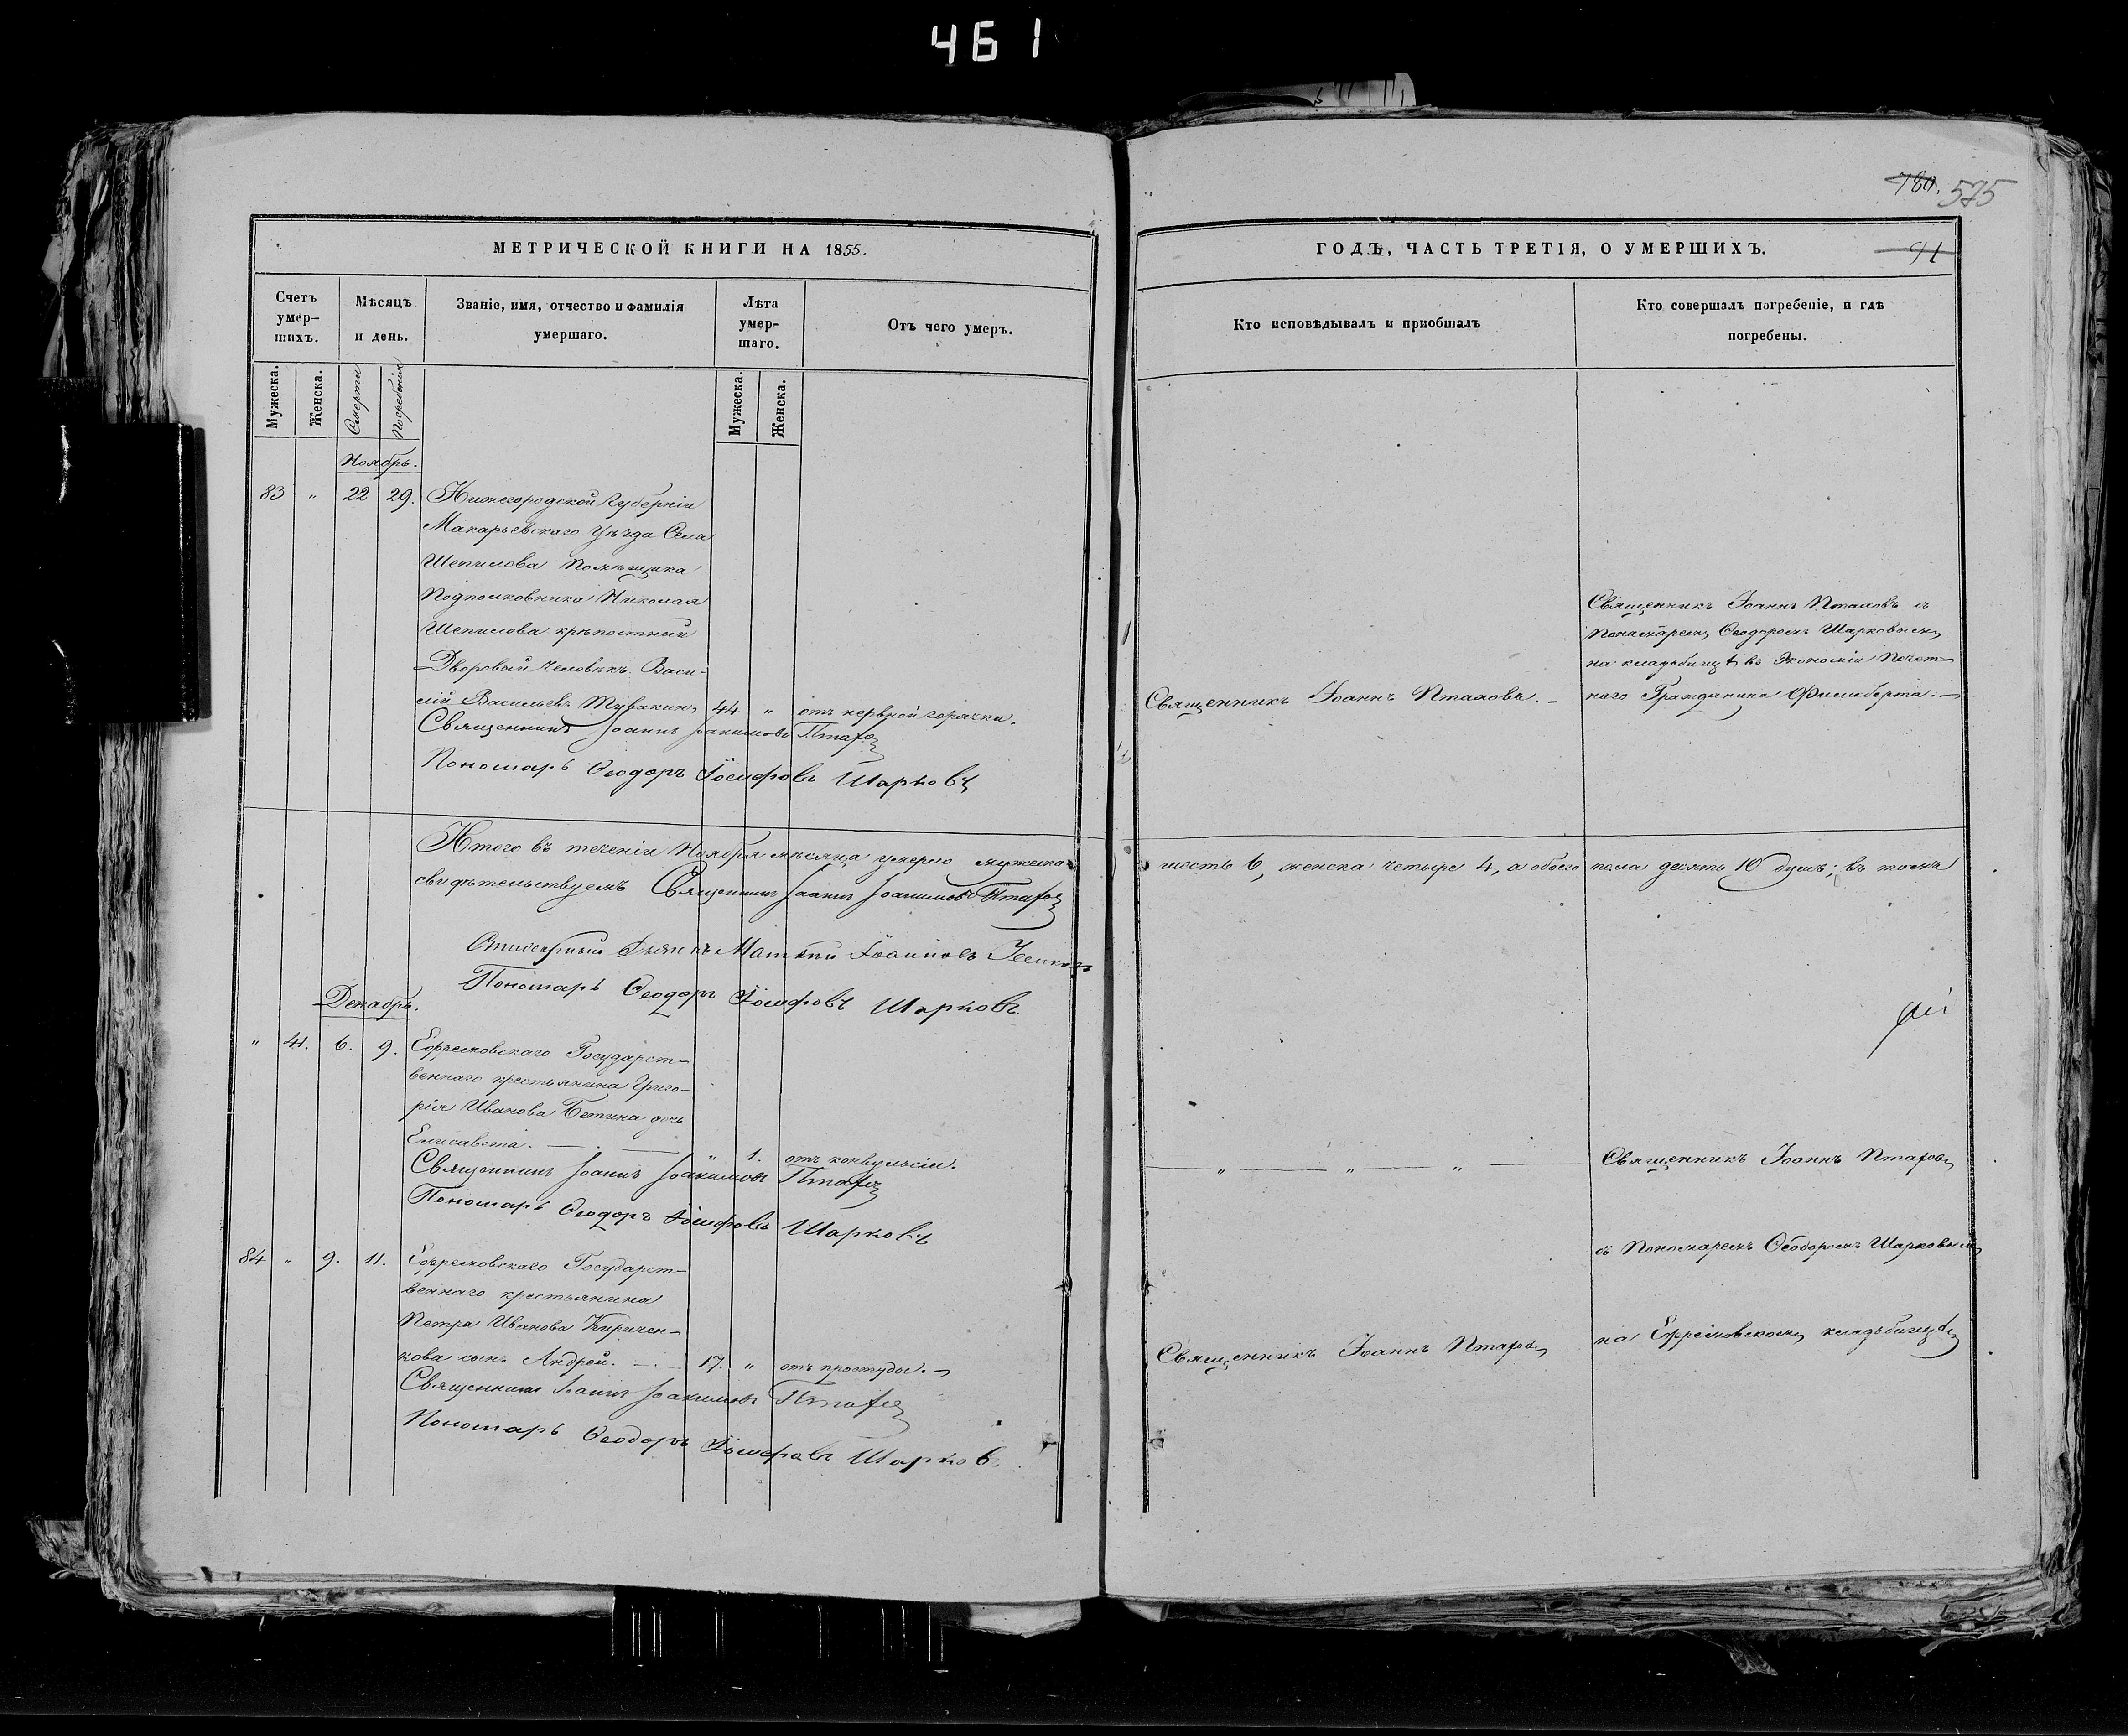 461
780. 575
МЕТРИЧЕСКОЙ КНИГИ НА 1855.
ГОДЪ, ЧАСТЬ ТРЕТІЯ, О УМЕРШИХЪ.
91
Счетъ умер-шихъ.
Мѣсяцъ и день.
Званіе, имя, отчество и фамилія умершаго.
Лѣта умер-шаго.
Отъ чего умеръ.
Кто исповѣдывалъ и пріобщалъ
Кто совершалъ погребеніе, и гдѣ погребены.
Мужеска.
Женска.
Смерти
Погребенія
Мужеска.
Женска.
Ноябрь.
83 " 22 29. Нижегородской Губерніи
Макарьевскаго Уѣзда Села
Шепилова Помѣщика
Подполковника Николая
Шепилова крѣпостный
Дворовый человѣкъ Васи-
лій Васильевъ 44 " отъ нервной горячки.
Священникъ Іоаннъ Іоакимовъ Птахов
Пономарь Ѳеодоръ Іосифовъ Шарковъ
Священникъ Іоаннъ Птаховъ.
Священникъ Іоаннъ Птаховъ съ
Пономаремъ Ѳеодоромъ Шарковымъ
на кладбищѣ въ Экономіи Почет-
наго Гражданина Филиберта.
Итого въ теченіи Ноября мѣсяца умерло мужеска шесть 6, женска четыре 4, а обоего пола десять 10 душъ; въ томъ
свидѣтельствуемъ Священникъ Іоаннъ Іоакимовъ Птахов
Дьякъ Матѳей Іоанновъ
Пономарь Ѳеодоръ Іосифовъ Шарковъ
Декабрь.
" 41. 6. 9. Ефремовскаго Государст-
веннаго крестьянина Григо-
рія Иванова Бетина дочь
Елисавета. " 1. отъ конвульсіи.
Священникъ Іоаннъ Іоакимовъ Птахов
Пономарь Ѳеодоръ Іосифовъ Шарковъ
" " "
Священникъ Іоаннъ Птаховъ
84 " 9. 11. Ефремовскаго Государст-
веннаго крестьянина
Петра Иванова Киричен-
кова сынъ Андрей. 17. " отъ простуды.
Священникъ Іоаннъ Іоакимовъ Птахов
Пономарь Ѳеодоръ Іосифовъ Шарковъ
Священникъ Іоаннъ Птаховъ
съ Пономаремъ Ѳеодоромъ Шарковымъ
на Ефремовскомъ кладбищѣ